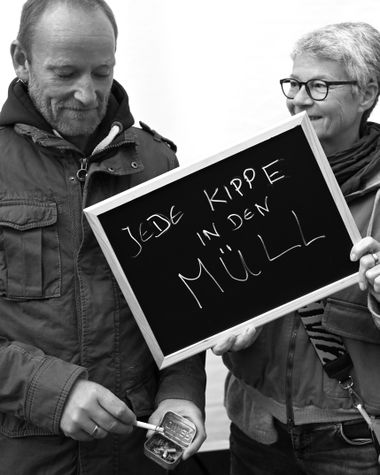 JEDE KIPPE
IN DEN
MÜLL